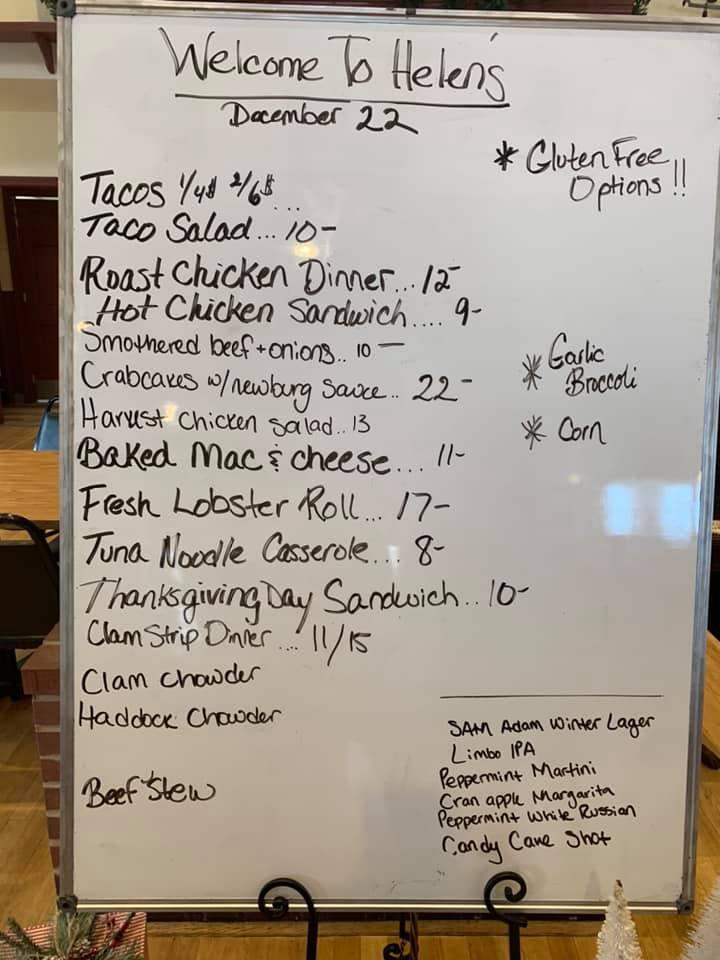 Welcome To Helen's
December 22
* Gluten Free
Options !!
Tacos 1/4$ 2/6$ ...
Taco Salad... 10-
Roast Chicken Dinner... 12-
Hot Chicken Sandwich.... 9-
Smothered beef + onions.. 10 —
Crabcakes w/newburg sauce.. 22-
Harvest chicken salad.. 13
Baked Mac & cheese... 11-
Fresh Lobster Roll... 17-
Tuna Noodle Casserole... 8-
Thanksgiving Day Sandwich.. 10-
Clam Strip Dinner .... 11/15
Clam Chowder
Haddock Chowder
Beef Stew
* Garlic
Broccoli
* Corn
SAM Adam Winter Lager
Limbo IPA
Peppermint Martini
Cran apple Margarita
Peppermint White Russian
Candy Cane Shot